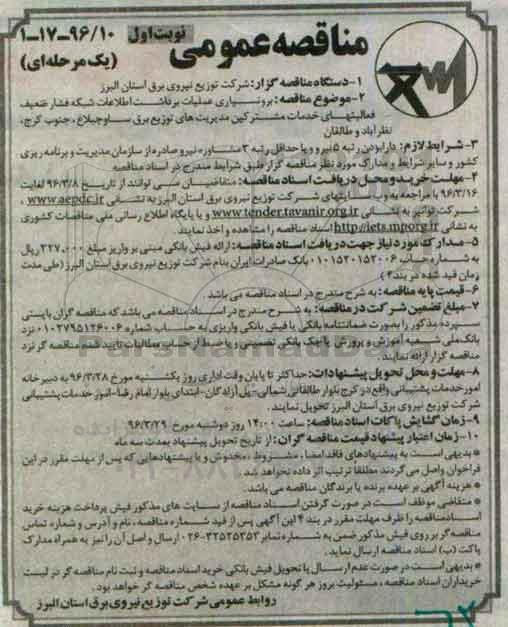 مناقصه عمومی
نوبت اول
۹۶/۱۰-۱۷-۱
(یک مرحله‌ای)
۱-دستگاه مناقصه گزار: شرکت توزیع نیروی برق استان البرز
۲-موضوع مناقصه: برونسپاری عملیات برداشت اطلاعات شبکه فشار ضعیف
فعالیتهای خدمات مشترکین مدیریت های توزیع برق ساوجبلاغ، جنوب کرج،
نظرآباد و طالقان
۳-شرایط لازم: دارا بودن رتبه ۵ نیرو و یا حداقل رتبه ۳ مشاوره نیرو صادره از سازمان مدیریت و برنامه ریزی
کشور و سایر شرایط و مدارک مورد نظر مناقصه گزار طبق شرایط مندرج در اسناد مناقصه
۴-مهلت خرید و محل دریافت اسناد مناقصه: متقاضیان می توانند از تاریخ ۹۶/۳/۸ لغایت
۹۶/۳/۱۶ با مراجعه به وب سایتهای شرکت توزیع نیروی برق استان البرز به نشانی www.aepdc.ir ،
شرکت توانیر به نشانی www.tender.tavanir.org.ir و یا پایگاه اطلاع رسانی ملی مناقصات کشوری
به نشانی http://iets.mporg.ir اسناد مناقصه را مشاهده و اخذ نمایند.
۵-مدارک مورد نیاز جهت دریافت اسناد مناقصه: ارائه فیش بانکی مبنی بر واریز مبلغ ۳۲۷,۰۰۰ ریال
به شماره حساب ۰۱۰۱۵۲۰۱۵۲۰۰۶ بانک صادرات ایران بنام شرکت توزیع نیروی برق استان البرز (طی مدت
زمان قید شده در بند ۴)
۶-قیمت پایه مناقصه: به شرح مندرج در اسناد مناقصه می باشد.
۷-مبلغ تضمین شرکت در مناقصه: به شرح مندرج در اسناد مناقصه می باشد که مناقصه گران بایستی
سپرده مذکور را بصورت ضمانتنامه بانکی یا فیش بانکی واریزی به حساب شماره ۰۱۰۲۷۹۵۱۲۶۰۰۶ نزد
بانک ملی شعبه آموزش و پرورش یا چک بانکی تضمینی و یا ضبط از محل مطالبات تایید شده مناقصه گر نزد
مناقصه گزار ارائه نمایند.
۸-مهلت و محل تحویل پیشنهادات: حداکثر تا پایان وقت اداری روز یکشنبه مورخ ۹۶/۳/۲۸ به دبیرخانه
امور خدمات پشتیبانی واقع در کرج بلوار طالقانی شمالی-پل آزادگان-ابتدای بلوار امام رضا-امور خدمات پشتیبانی
شرکت توزیع نیروی برق استان البرز تحویل نمایند.
۹-زمان گشایش پاکات اسناد مناقصه: ساعت ۱۴:۰۰ روز دوشنبه مورخ ۹۶/۳/۲۹
۱۰-زمان اعتبار پیشنهاد قیمت مناقصه گران: از تاریخ تحویل پیشنهاد بمدت سه ماه
* بدیهی است به پیشنهادهای فاقد امضاء، مشروط، مخدوش و یا پیشنهادهایی که پس از مهلت مقرر در این
فراخوان واصل می گردند مطلقا ترتیب اثر داده نخواهد شد.
* هزینه آگهی بر عهده برنده یا برندگان مناقصه می باشد.
* متقاضی موظف است در صورت گرفتن اسناد مناقصه از سایت های مذکور فیش پرداخت هزینه خرید
اسناد مناقصه را ظرف مهلت مقرر در بند ۴ این آگهی پس از قید شماره مناقصه، نام و آدرس و شماره تماس
مناقصه گر بر روی فیش مذکور ضمن به شماره نمابر ۳۲۵۲۵۲۵۲-۰۲۶ ارسال و اصل آن را نیز به همراه مدارک
پاکت (ب) اسناد مناقصه ارسال نماید.
* بدیهی است در صورت عدم ارسال یا تحویل فیش بانکی خرید اسناد مناقصه و ثبت نام مناقصه گر در لیست
خریداران اسناد مناقصه، مسئولیت بروز هر گونه مشکل بر عهده شخص مناقصه گر خواهد بود.
روابط عمومی شرکت توزیع نیروی برق استان البرز